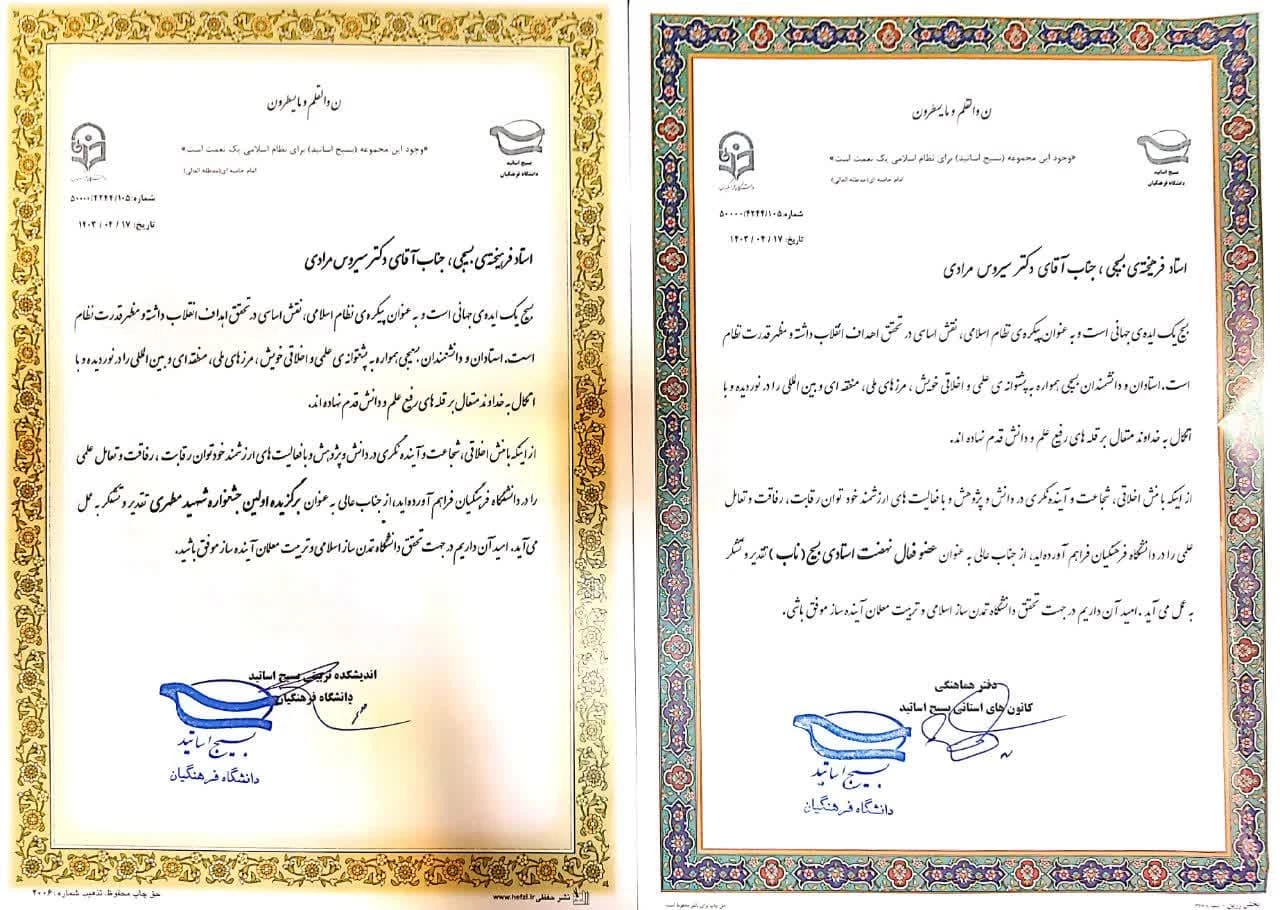 ن والقلم و مایسطرون
«وجود این مجموعه (بسیج اساتید) برای نظام اسلامی یک نعمت است»
امام خامنه ای(مدظله العالی)
بسیج اساتید
دانشگاه فرهنگیان
دانشگاه فرهنگیان
شماره: ۵۰۰۰۰/۴۲۴۴/۱۰۵
تاریخ: ۱۷ / ۰۴ / ۱۴۰۳
استاد فرهیخته‌ی بسیجی ، جناب آقای دکتر سیروس مرادی
بسیج یک ایده‌ی جهانی است و به عنوان پیکره‌ی نظام اسلامی، نقش اساسی در تحقق اهداف انقلاب داشته و مظهر قدرت نظام
است. استادان و دانشمندان بسیجی همواره به پشتوانه ی علمی و اخلاقی خویش ، مرزهای ملی، منطقه ای و بین المللی را در نوردیده و با
اتکال به خداوند متعال بر قله های رفیع علم و دانش قدم نهاده اند.
از اینکه با منش اخلاقی، شجاعت و آینده نگری در دانش و پژوهش و با فعالیت های ارزشمند خود توان رقابت، رفاقت و تعامل
علمی را در دانشگاه فرهنگیان فراهم آورده‌اید، از جناب عالی به عنوان عضو فعال نهضت استادی بسیج (ناب) تقدیر و تشکر
به عمل می آید .امید آن داریم در جهت تحقق دانشگاه تمدن ساز اسلامی و تربیت معلمان آینده ساز موفق باشی.
دفتر هماهنگی
کانون های استانی بسیج اساتید
بسیج اساتید
دانشگاه فرهنگیان
ن والقلم و مایسطرون
«وجود این مجموعه (بسیج اساتید) برای نظام اسلامی یک نعمت است»
امام خامنه ای(مدظله العالی)
بسیج اساتید
دانشگاه فرهنگیان
دانشگاه فرهنگیان
شماره: ۵۰۰۰۰/۴۲۴۴/۱۰۵
تاریخ: ۱۷ / ۰۴ / ۱۴۰۳
استاد فرهیخته‌ی بسیجی ، جناب آقای دکتر سیروس مرادی
بسیج یک ایده‌ی جهانی است و به عنوان پیکره‌ی نظام اسلامی، نقش اساسی در تحقق اهداف انقلاب داشته و مظهر قدرت نظام
است. استادان و دانشمندان بسیجی همواره به پشتوانه ی علمی و اخلاقی خویش ، مرزهای ملی، منطقه ای و بین المللی را در نوردیده و با
اتکال به خداوند متعال بر قله های رفیع علم و دانش قدم نهاده اند.
از اینکه با منش اخلاقی، شجاعت و آینده نگری در دانش و پژوهش و با فعالیت های ارزشمند خود توان رقابت ، رفاقت و تعامل علمی
را در دانشگاه فرهنگیان فراهم آورده‌اید، از جناب عالی به عنوان برگزیده اولین جشنواره شهید مطهری تقدیر و تشکر به عمل
می‌آید. امید آن داریم در جهت تحقق دانشگاه تمدن ساز اسلامی و تربیت معلمان آینده ساز موفق باشید.
اندیشکده تربیتی بسیج اساتید
دانشگاه فرهنگیان
بسیج اساتید
دانشگاه فرهنگیان
نشر حفظی www.hefzi.ir
حق چاپ محفوظ، تذهیب شماره: ۲۰۰۶